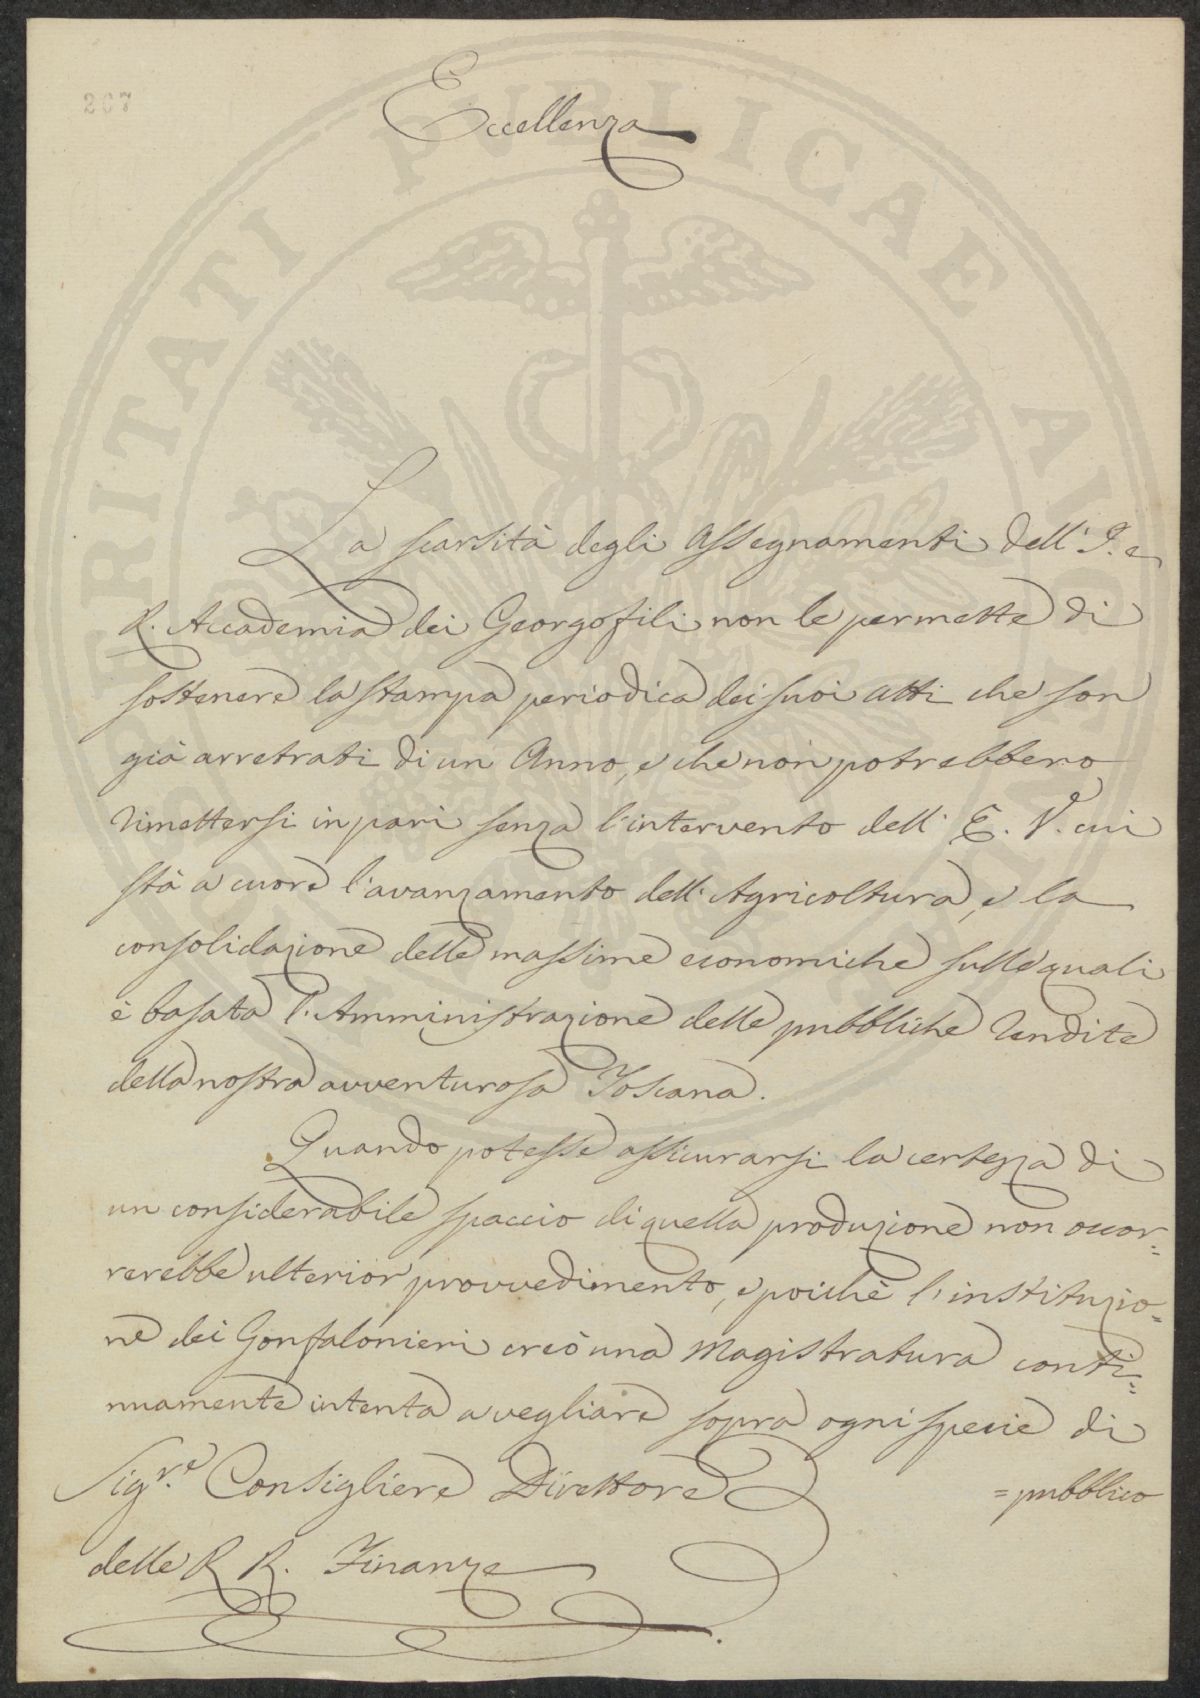 267
Eccellenza
La scarsità degli Assegnamenti dell' I. e
R. Accademia dei Georgofili non le permette di
sostenere la stampa periodica dei suoi atti che son
già arretrati di un Anno, e che non potrebbero
rimettersi in pari senza l'intervento dell' E. V. cui
stà a cuore l'avanzamento dell'Agricoltura, e la
consolidazione delle massime economiche sulle quali
è basata l'Amministrazione delle pubbliche Rendite
della nostra avventurosa Toscana.
Quando potesse assicurarsi la certezza di
un considerabile spaccio di quella produzione non occor=
rerebbe ulterior provvedimento, e poichè l'instituzio=
ne dei Gonfalonieri creò una Magistratura conti=
nuamente intenta a vegliare sopra ogni specie di
=pubblico
Sigr.e Consigliere Direttore
delle R R. Finanze